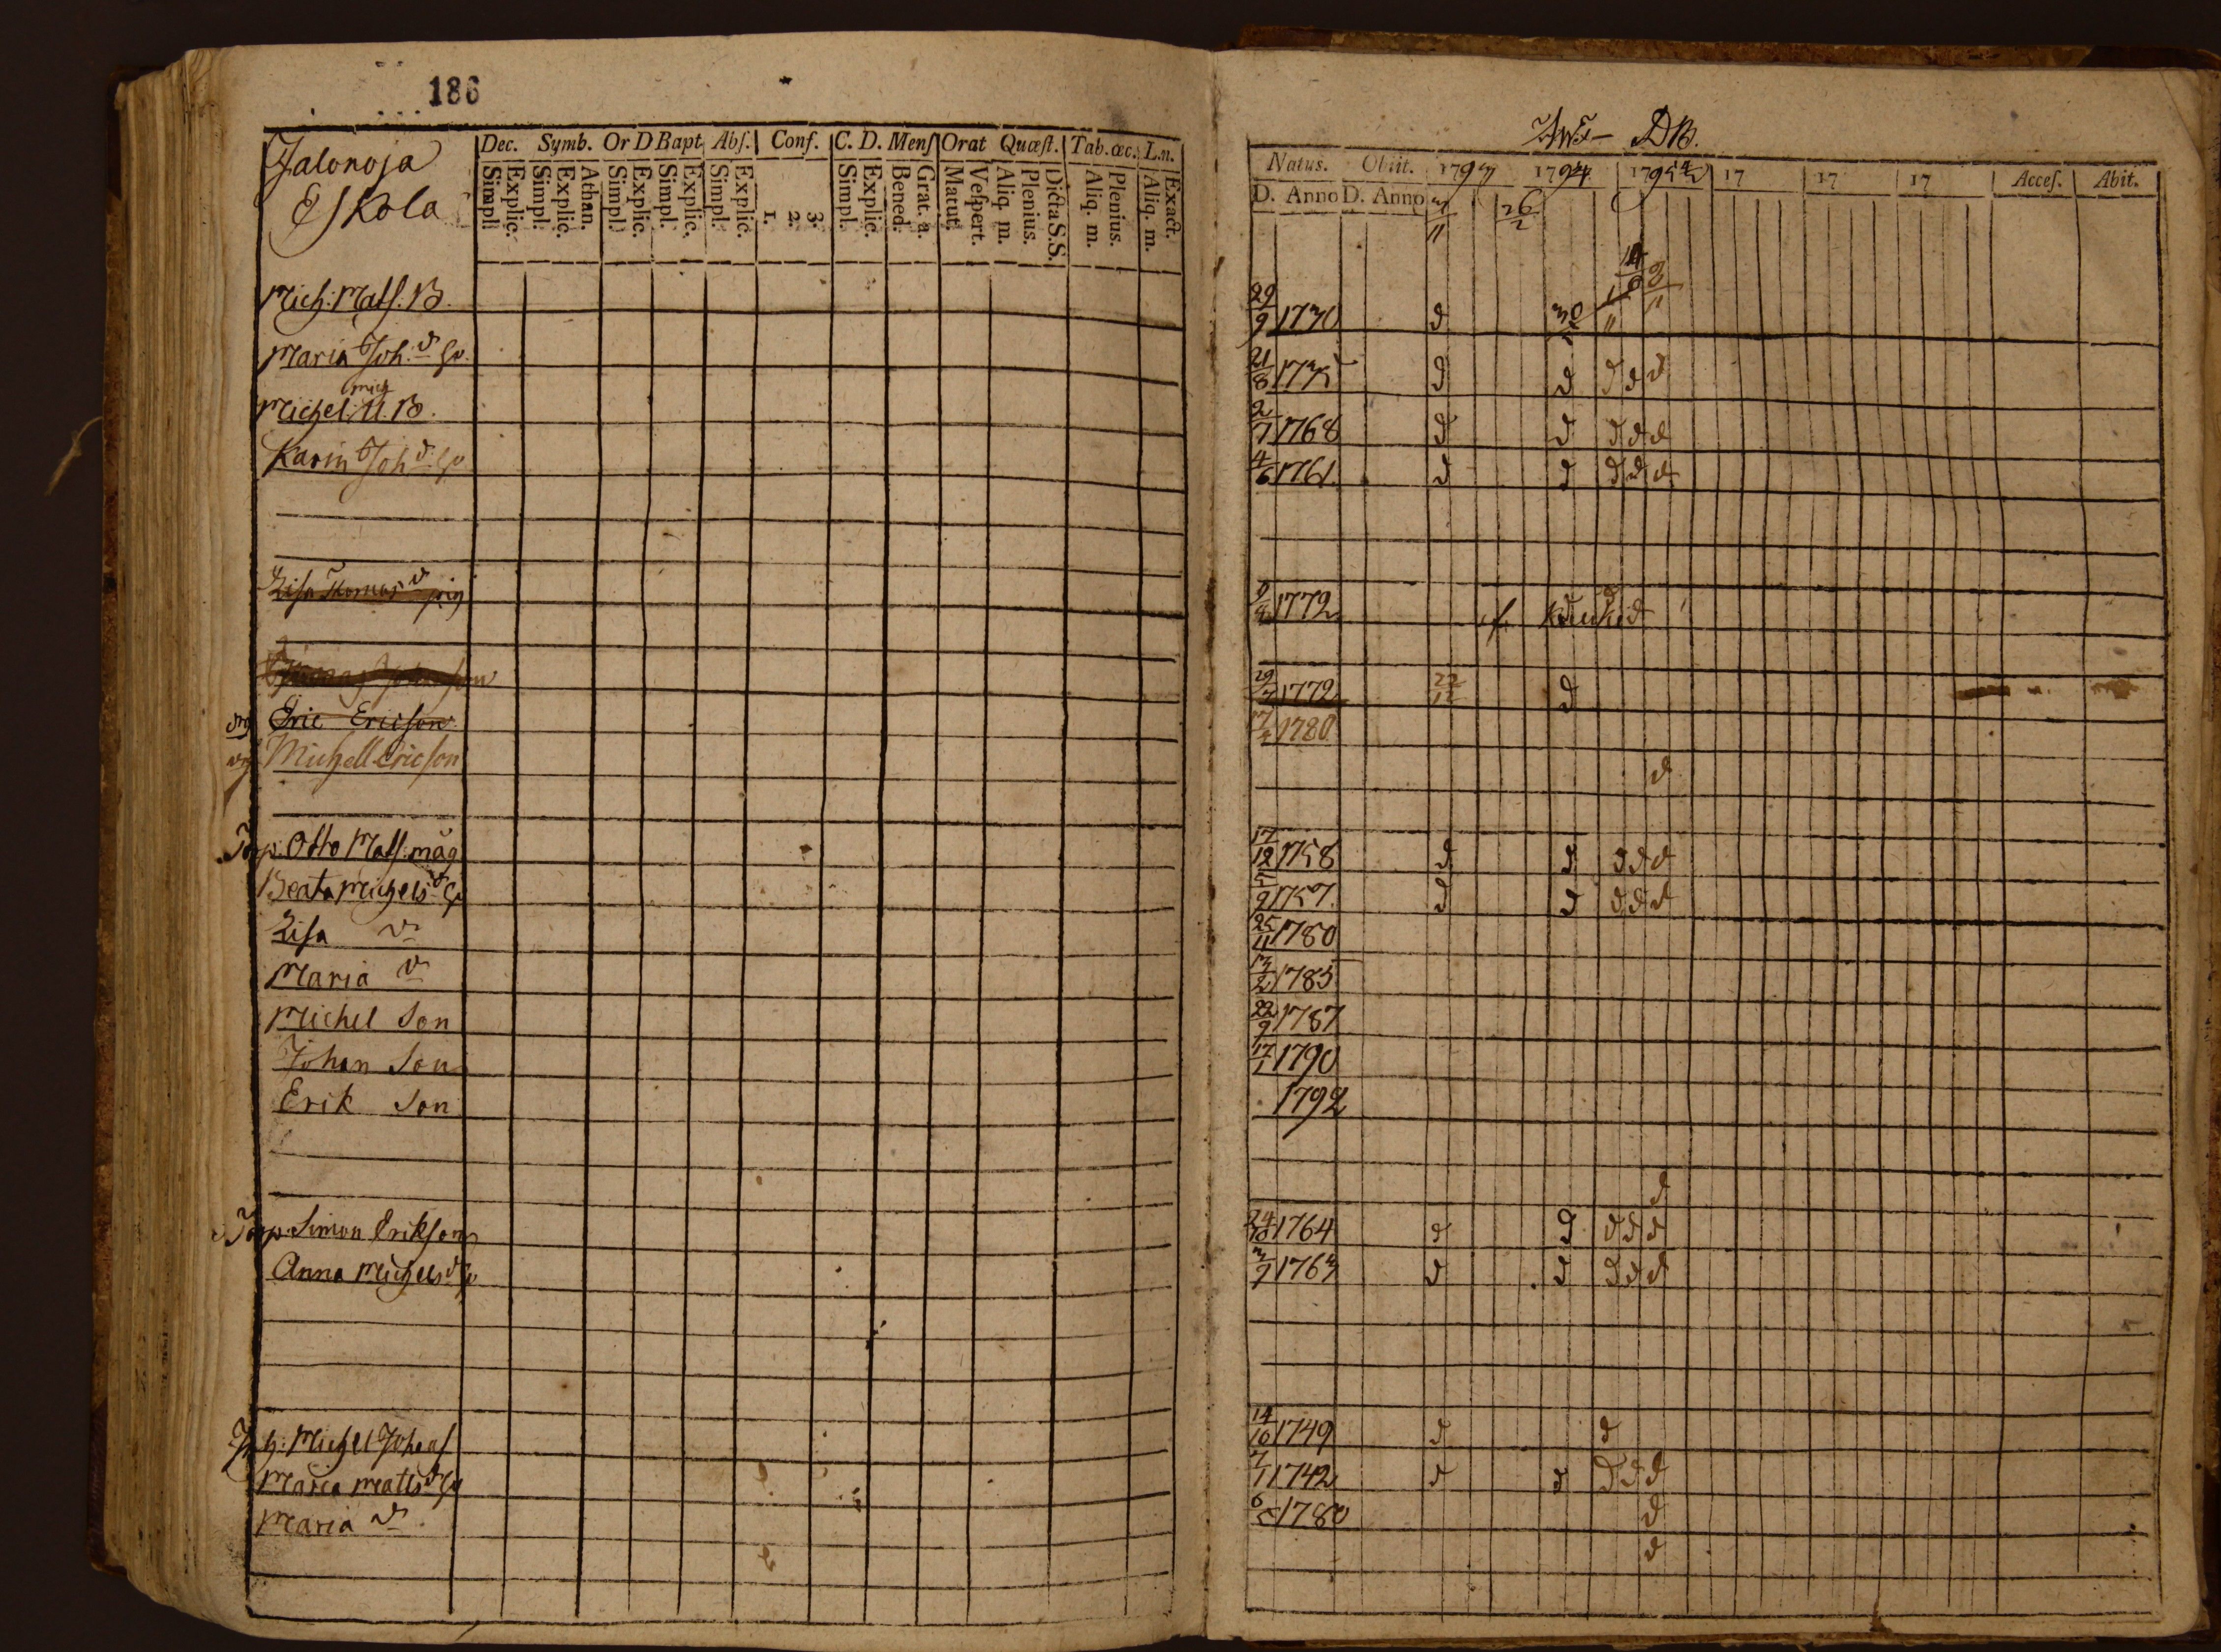 186
Jalonoja
Eskola
Dec. Symb. Or D Bapt Abs. Conf. C. D. Mens Orat Quæst. Tab. œc. L.n.
Simpl. Explic. Simpl. Explic. Athan. Simpl. Explic. Simpl. Explic. Simpl. Explic. 1. 2. 3. Simpl. Explic. Bened. Grat. a. Matut. Vespert. Aliq. m. Plenius. Dicta S.S. Aliq. m. Plenius. Aliq. m. Exact.
Mich: Mats. B.
Maria Joh: d hu.
mich
Michel: M. B.
Karin Joh d: hu
Lisa Thomas d pig
Johanson
drg Eric Ericson
Michell Ericson
Torp. Otto Mats. måg
Beata Michels d hu
Lisa d
Maria d
Michel Son
Johan Son
Erik Son
Torp. Simon Erikson
Anna Michels d hu
Jh: Michel Johans
Maria Matts d hu
Maria d
DB.
Natus. Obiit. 1793 1794 1795 17 17 17 Acces. Abit.
D. Anno D. Anno 3/11 26/2
29/9 1730 d 30
21/8 1735 d d d d d
2/7 1768 d d d d d
4/6 1761. d d d d d
1772 f.
29 1772 22/12 d
1780
d
17/12 1758 d d d d d
5/9 1757. d d d d d
25/11 1780
13/2 1785
22/9 1787
17/1 1790
1792
d
24/10 1764 d d d d d
3/7 1763 d d d d d
14/10 1749 d d
7/1 1742 d d d d d
6/5 1780 d
d